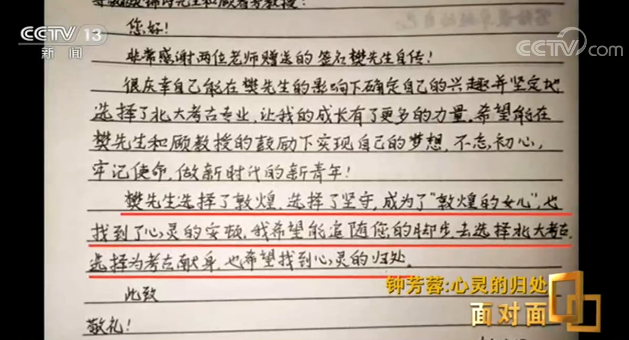 CCTV 13
新闻
您好!
非常感谢两位老师赠送的签名樊先生自传!
很庆幸自己能在樊先生的影响下确定自己的兴趣并坚定地
选择了北大考古专业,让我的成长有了更多的力量。希望能在
樊先生和顾教授的鼓励下实现自己的梦想,不忘初心,
牢记使命,做新时代的新青年!
樊先生选择了敦煌,选择了坚守,成为了“敦煌的女儿”,也
找到了心灵的安顿。我希望能追随您的脚步去选择北大考古,
选择为考古献身,也希望找到心灵的归处。
此致
敬礼!
钟芳蓉:心灵的归处
面对面